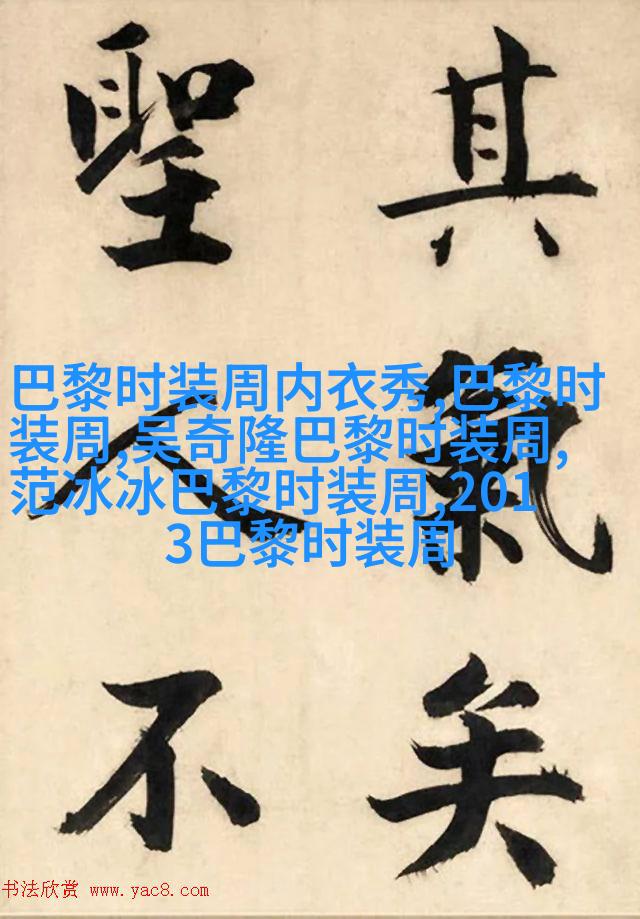 其氣矣
聖人不
巴黎时装周内衣秀,巴黎时
装周,吴奇隆巴黎时装周,
范冰冰巴黎时装周,201
3巴黎时装周
书法欣赏 www.yac8.com